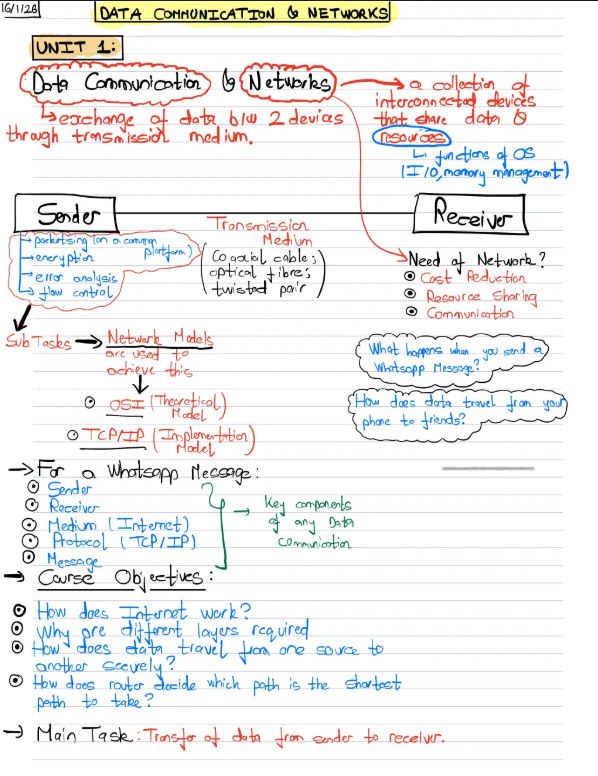 16/1/26
DATA COMMUNICATION & NETWORKS
UNIT 1:
Data Communication & Networks → a collection of
interconnected devices
that share data &
resources
↳ functions of OS
(I/O, memory management)
↳ exchange of data b/w 2 devices
through transmission medium.
Sender
Receiver
Transmission
Medium
(Coaxial cable;
optical fibre;
twisted pair)
→ packetising (on a common
platform)
→ encryption
→ error analysis
→ flow control
Need of Network?
Cost Reduction
Resource Sharing
Communication
Sub Tasks → Network Models
are used to
achieve this
OSI (Theoretical
Model)
TCP/IP (Implementation
Model)
What happens when you send a
Whatsapp Message?
How does data travel from your
phone to friends?
→ For a Whatsapp Message:
Sender
Receiver
Medium (Internet)
Protocol (TCP/IP)
Message
→ Key components
of any Data
Communication
→ Course Objectives:
How does Internet work?
Why are different layers required
How does data travel from one source to
another securely?
How does router decide which path is the shortest
path to take?
→ Main Task: Transfer of data from sender to receiver.